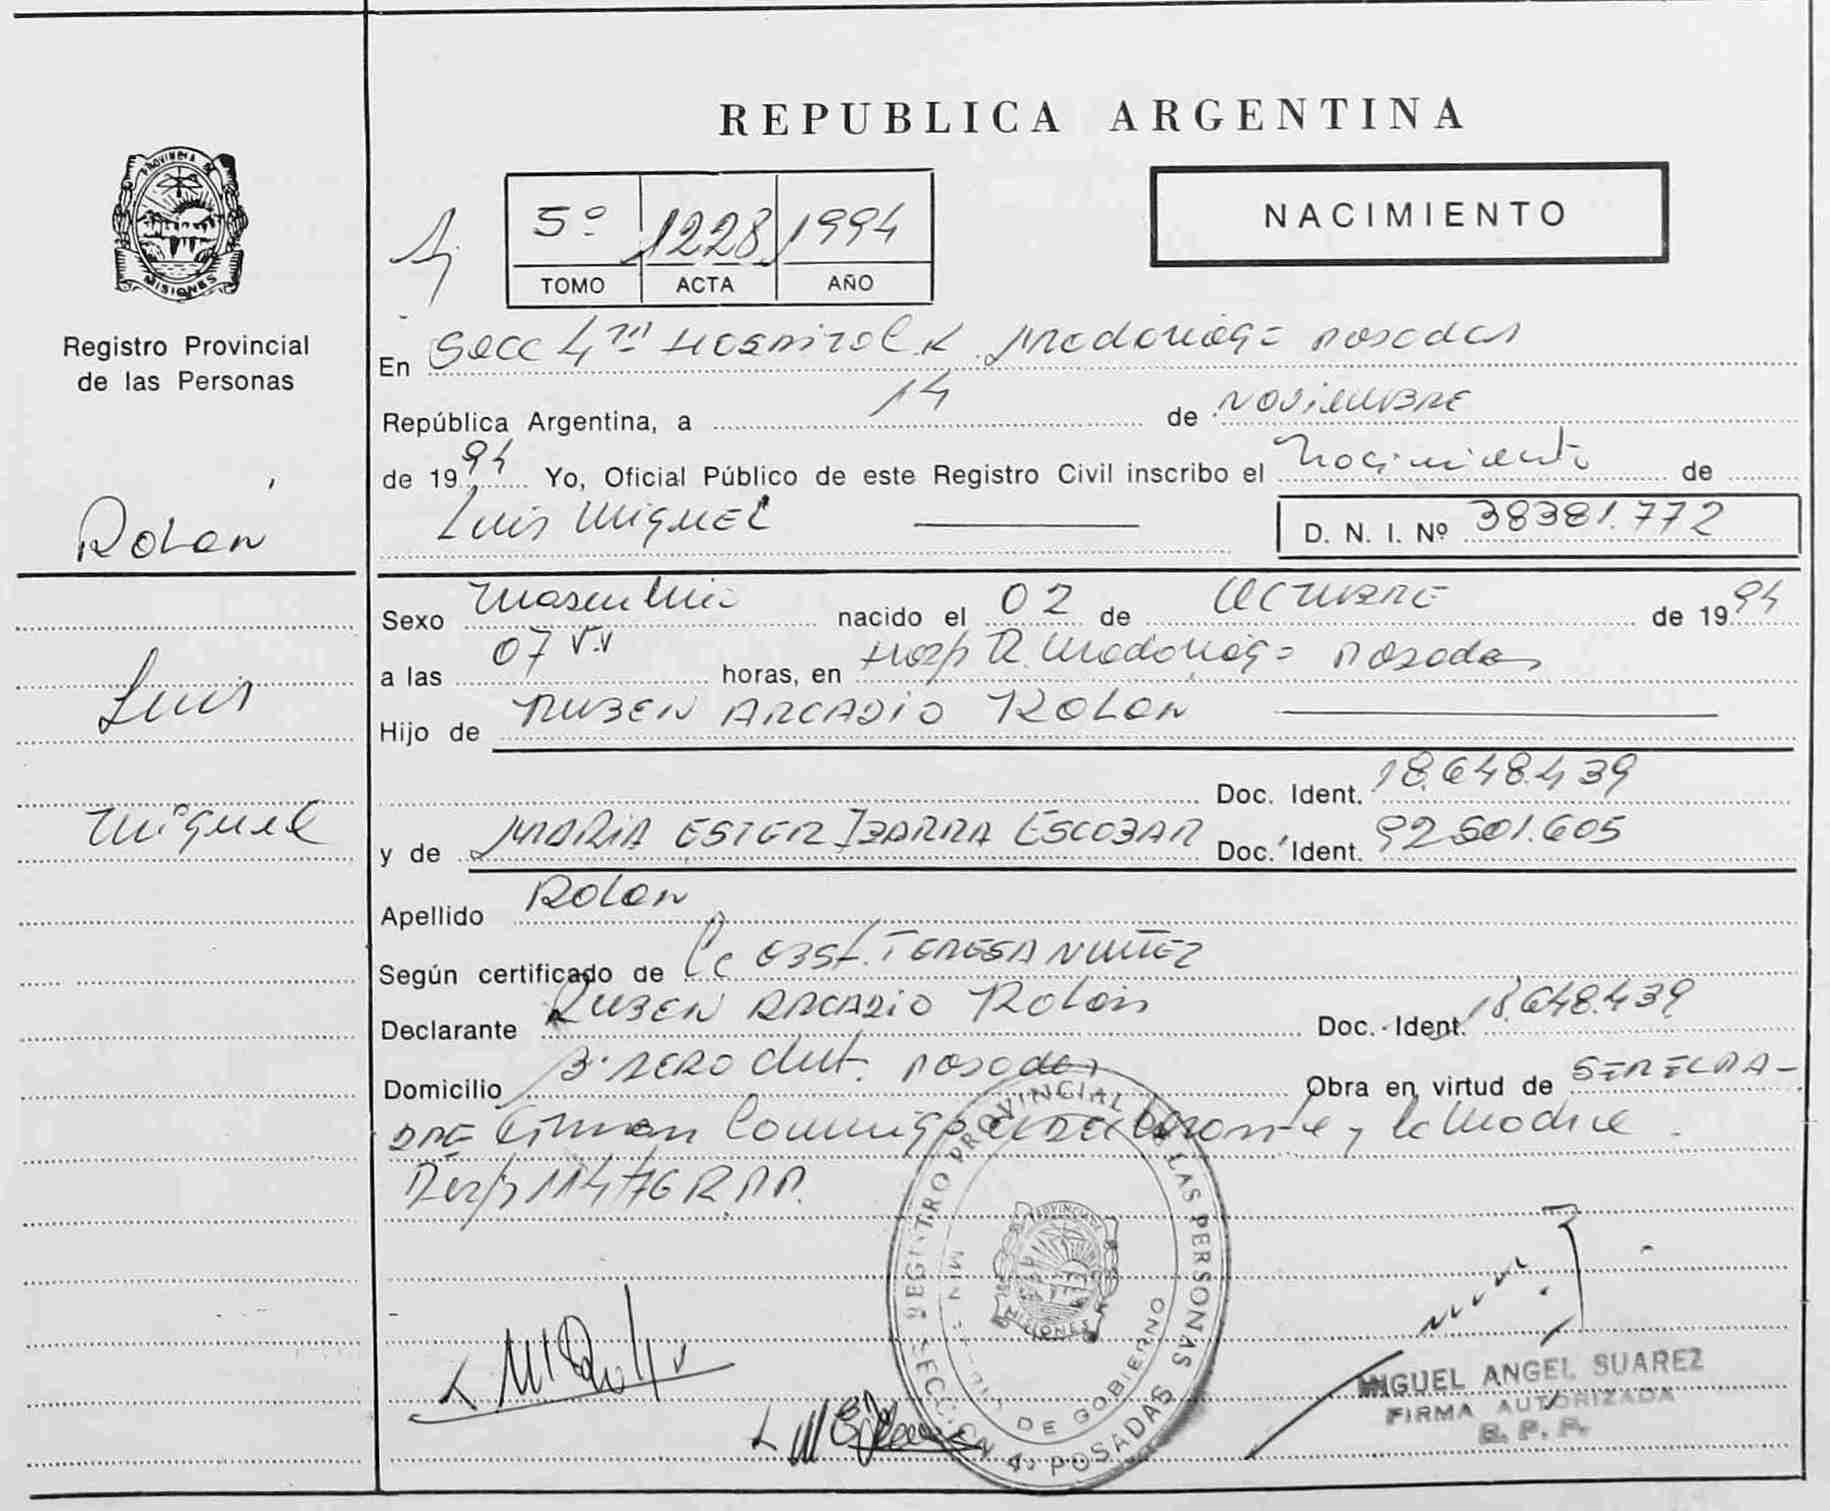 REPUBLICA ARGENTINA
PROVINCIA DE
MISIONES
Registro Provincial
de las Personas
5º 1228 1994
TOMO ACTA AÑO
NACIMIENTO
En Secc 4ta Hospital R. Madariaga Posadas
República Argentina, a 14 de Noviembre
de 1994 Yo, Oficial Público de este Registro Civil inscribo el Nacimiento de
Luis Miguel D. N. I. Nº 38381.772
Rolon
Sexo Masculino nacido el 02 de Octubre de 1994
a las 07 horas, en Hosp R. Madariaga Posadas
Luis
Hijo de RUBEN ARCADIO ROLON
Doc. Ident. 18.648.439
Miguel
y de MARIA ESTER IBARRA ESCOBAR Doc. Ident. 92.501.605
Apellido Rolon
Según certificado de Obst. TERESA NUÑEZ
Declarante RUBEN ARCADIO Rolon Doc. Ident. 18.648.439
Domicilio Posadas Obra en virtud de
Firman Conmigo el Declarante y la Madre.
REGISTRO PROVINCIAL DE LAS PERSONAS
SECCION 4a POSADAS
DE GOBIERNO
PROVINCIA
MISIONES
MIGUEL ANGEL SUAREZ
FIRMA AUTORIZADA
R. P. P.